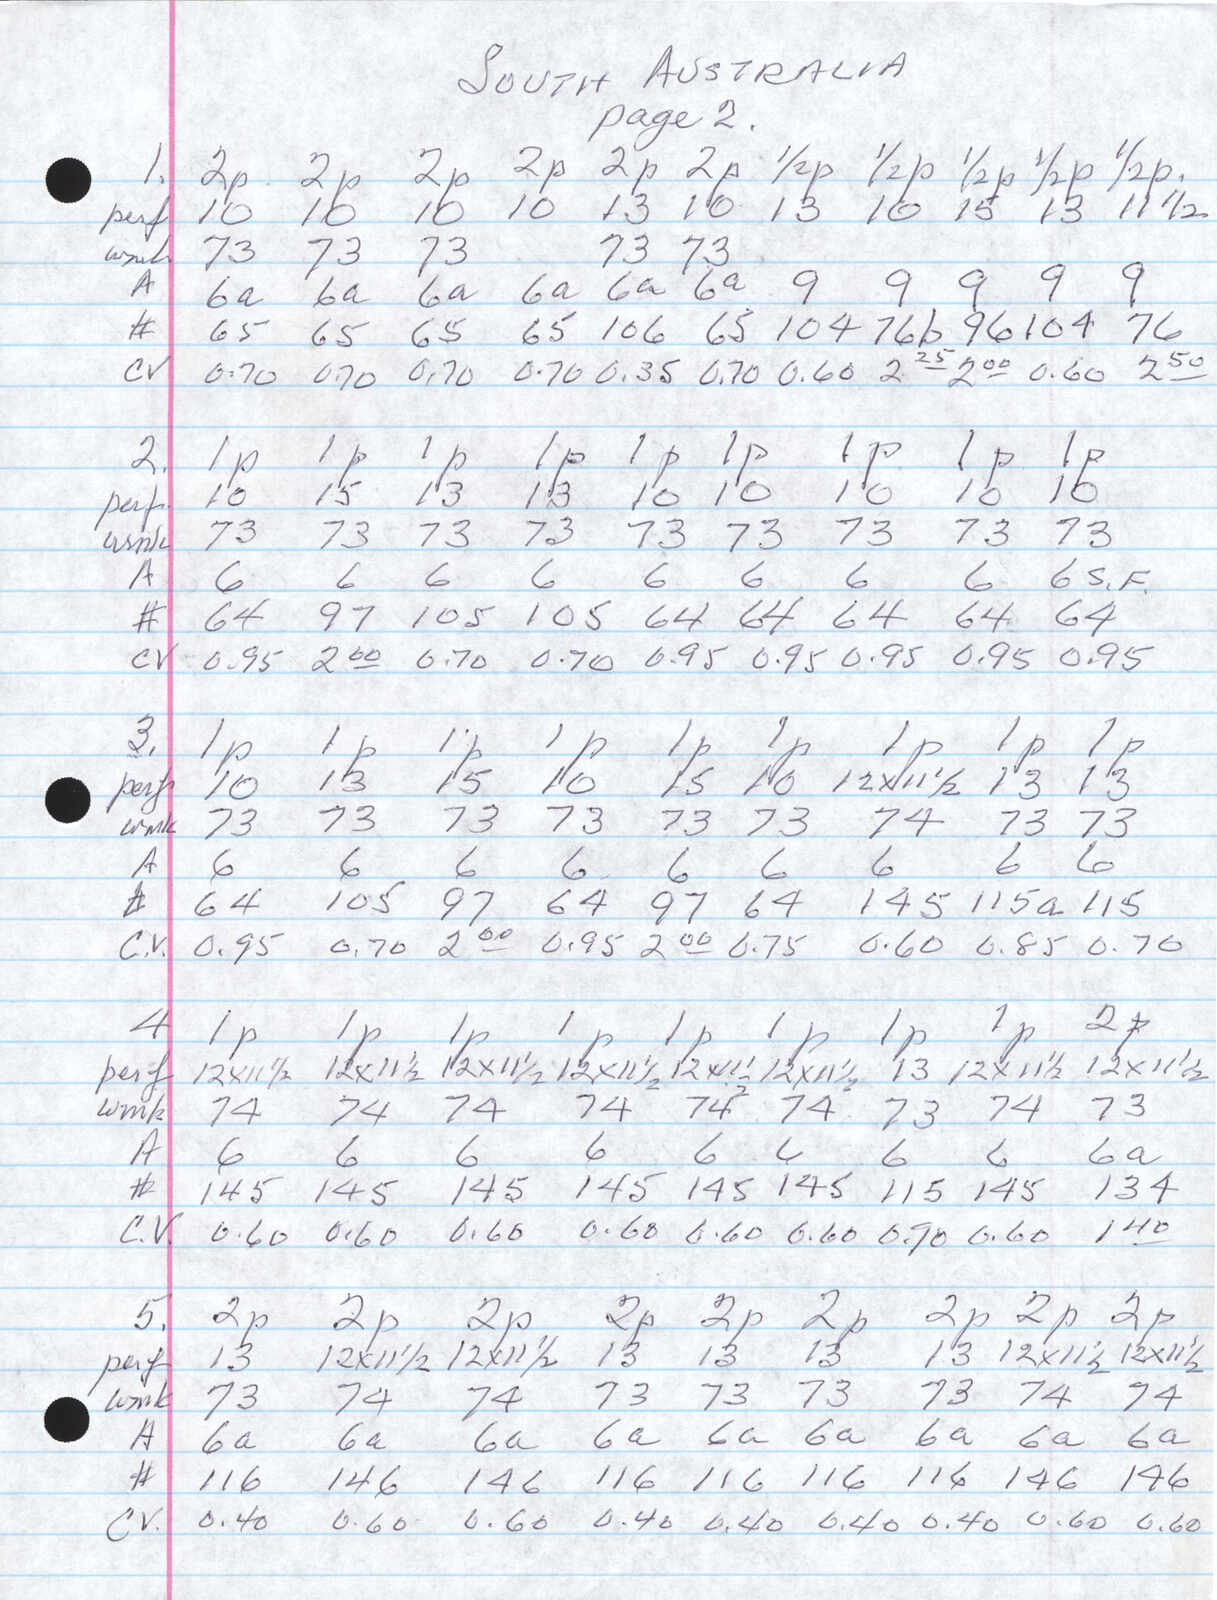 SOUTH AUSTRALIA
page 2.
1. 2p 2p 2p 2p 2p 2p 1/2p 1/2p 1/2p 1/2p 1/2p.
perf 10 10 10 10 13 10 13 10 15 13 11 1/2
wmk 73 73 73 73 73
A 6a 6a 6a 6a 6a 6a 9 9 9 9 9
# 65 65 65 65 106 65 104 76b 96 104 76
CV 0.70 0.70 0.70 0.70 0.35 0.70 0.60 2.25 2 00 0.60 2 50
2. 1p 1p 1p 1p 1p 1p 1p 1p 1p
perf. 10 15 13 13 10 10 10 10 10
wmk 73 73 73 73 73 73 73 73 73
A 6 6 6 6 6 6 6 6 6 S.F.
# 64 97 105 105 64 64 64 64 64
CV 0.95 2 00 0.70 0.70 0.95 0.95 0.95 0.95 0.95
3. 1p 1p 1p 1p 1p 1p 1p 1p 1p
perf 10 13 15 10 15 10 12x11 1/2 13 13
wmk 73 73 73 73 73 73 74 73 73
A 6 6 6 6 6 6 6 6 6
# 64 105 97 64 97 64 145 115a 115
C.V. 0.95 0.70 2 00 0.95 2 00 0.75 0.60 0.85 0.70
4 1p 1p 1p 1p 1p 1p 1p 1p 2p
perf 12x11 1/2 12x11 1/2 12x11 1/2 12x11 1/2 12x11 1/2 12x11 1/2 13 12x11 1/2 12x11 1/2
wmk 74 74 74 74 74 74 73 74 73
A 6 6 6 6 6 6 6 6 6a
# 145 145 145 145 145 145 115 145 134
C.V. 0.60 0.60 0.60 0.60 0.60 0.60 0.70 0.60 1 40
5. 2p 2p 2p 2p 2p 2p 2p 2p 2p
perf 13 12x11 1/2 12x11 1/2 13 13 13 13 12x11 1/2 12x11 1/2
wmk 73 74 74 73 73 73 73 74 74
A 6a 6a 6a 6a 6a 6a 6a 6a 6a
# 116 146 146 116 116 116 116 146 146
CV. 0.40 0.60 0.60 0.40 0.40 0.40 0.40 0.60 0.60